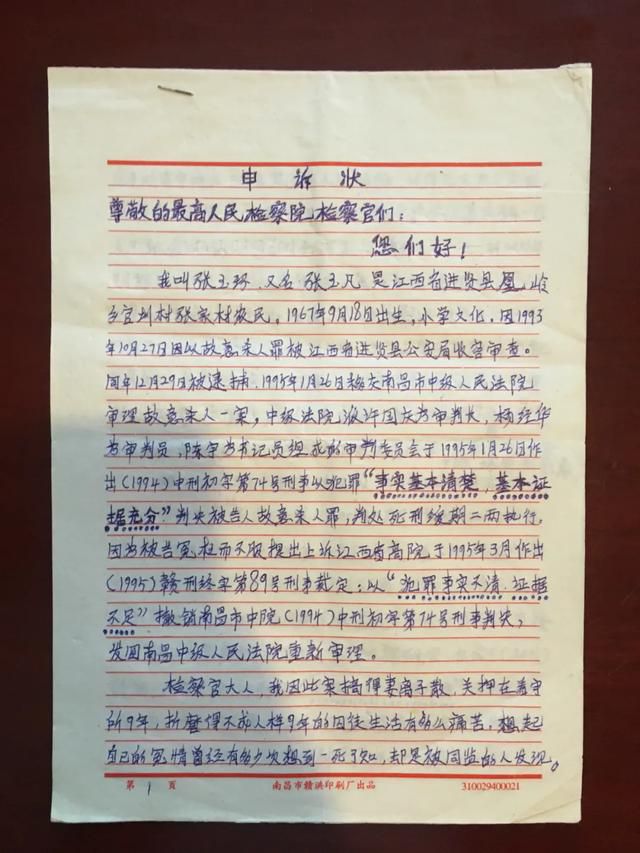 申诉状
尊敬的最高人民检察院检察官们：
您们好！
我叫张玉环，又名张玉凡是江西省进贤县凰岭
乡宜圳村张家村农民，1967年9月18日出生，小学文化，因1993
年10月27日因以故意杀人罪被江西省进贤县公安局收容审查。
同年12月29日被逮捕，1995年1月26日南昌市中级人民法院
审理故意杀人一案，中级法院许国庆为审判长，杨经华
为审判员，陈宇为书记员组成的审判委员会于1995年1月26日作
出（1994）中刑初字第74号刑事以犯罪“事实基本清楚，基本证
据充分”判决被告人故意杀人罪，判处死刑缓期二两执行，
因为被告冤枉而不服提出上诉江西省高院于1995年3月作出
（1995）赣刑终字第89号刑事裁定：以“犯罪事实不清.证据
不足”撤销南昌市中院（1994）中刑初字第74号刑事判决，
发回南昌中级人民法院重新审理。
检察官大人，我因此案搞得妻离子散，关押在看守
所9年，折整得不成人样9年的囚徒生活有的么痛苦，想起
自己的冤情曾经有的少次想到一死了知，却是被同监的人发现。
第 1 页 南昌市赣洪印刷厂出品 310029400021